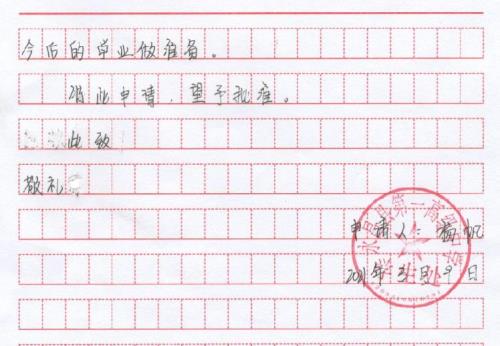 今后的毕业做准备。
特此申请，望予批准。
此致
敬礼
申请人：杨帆
2011年3月9日
县第一高级中学